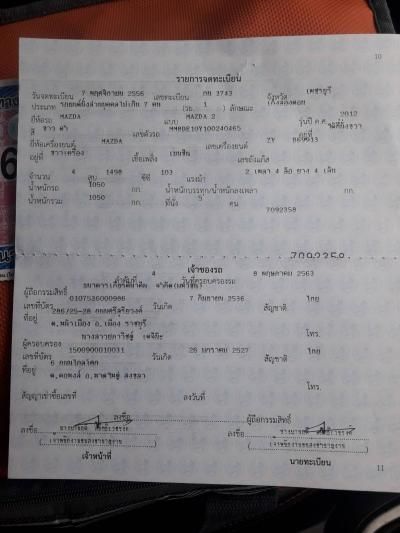 10
รายการจดทะเบียน
วันจดทะเบียน 7 พฤศจิกายน 2556 เลขทะเบียน กย 3743 จังหวัด เพชรบุรี
ประเภท รถยนต์นั่งส่วนบุคคลไม่เกิน 7 คน (รย. 1 ) ลักษณะ เก๋งสองตอน
ยี่ห้อรถ MAZDA แบบ MAZDA 2 รุ่นปี ค.ศ. 2012
สี ขาว ดำ เลขตัวรถ MM8DE10Y100240465 อยู่ที่
ยี่ห้อเครื่องยนต์ MAZDA เลขเครื่องยนต์ ZY
อยู่ที่ เชื้อเพลิง เบนซิน เลขถังแก๊ส
จำนวน 4 สูบ 1498 ซีซี 103 แรงม้า 2 เพลา 4 ล้อ ยาง 4 เส้น
น้ำหนักรถ 1050 กก. น้ำหนักบรรทุก/น้ำหนักลงเพลา กก.
น้ำหนักรวม 1050 กก. ที่นั่ง 5 คน
7092358
7092358
เจ้าของรถ
ลำดับที่ 4 วันที่ครอบครองรถ 8 พฤษภาคม 2563
ผู้ถือกรรมสิทธิ์ ธนาคารเกียรตินาคิน จำกัด (มหาชน)
เลขที่บัตร 0107536000986 วันเกิด 7 กันยายน 2536 สัญชาติ ไทย
ที่อยู่ 286/25-28 ถนนศรีสุริยวงศ์
ต.หน้าเมือง อ.เมือง ราชบุรี โทร.
ผู้ครอบครอง
เลขที่บัตร 1500900010031 วันเกิด 26 มกราคม 2527 สัญชาติ ไทย
ที่อยู่
อ.หาดใหญ่ สงขลา
โทร.
สัญญาเช่าซื้อเลขที่ ลงวันที่
ลงชื่อ ผู้ถือกรรมสิทธิ์
ลงชื่อ ลงชื่อ
เจ้าหน้าที่ นายทะเบียน
11